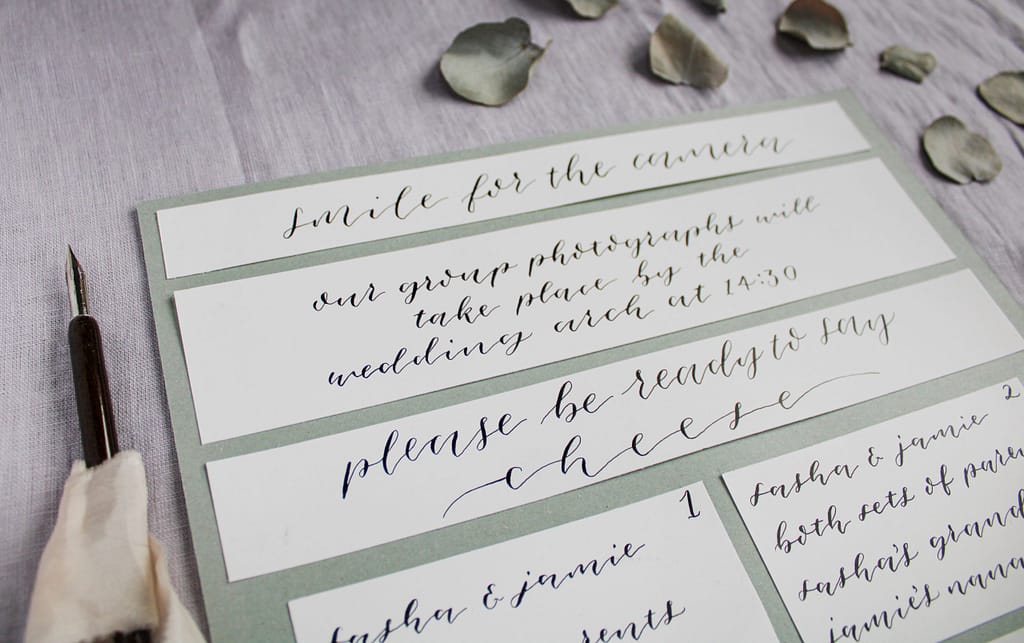 smile for the camera
our group photographs will
take place by the
wedding arch at 14:30
please be ready to say
cheese
1
sasha & jamie
2
sasha & jamie
both sets of
sasha's
jamie's nana